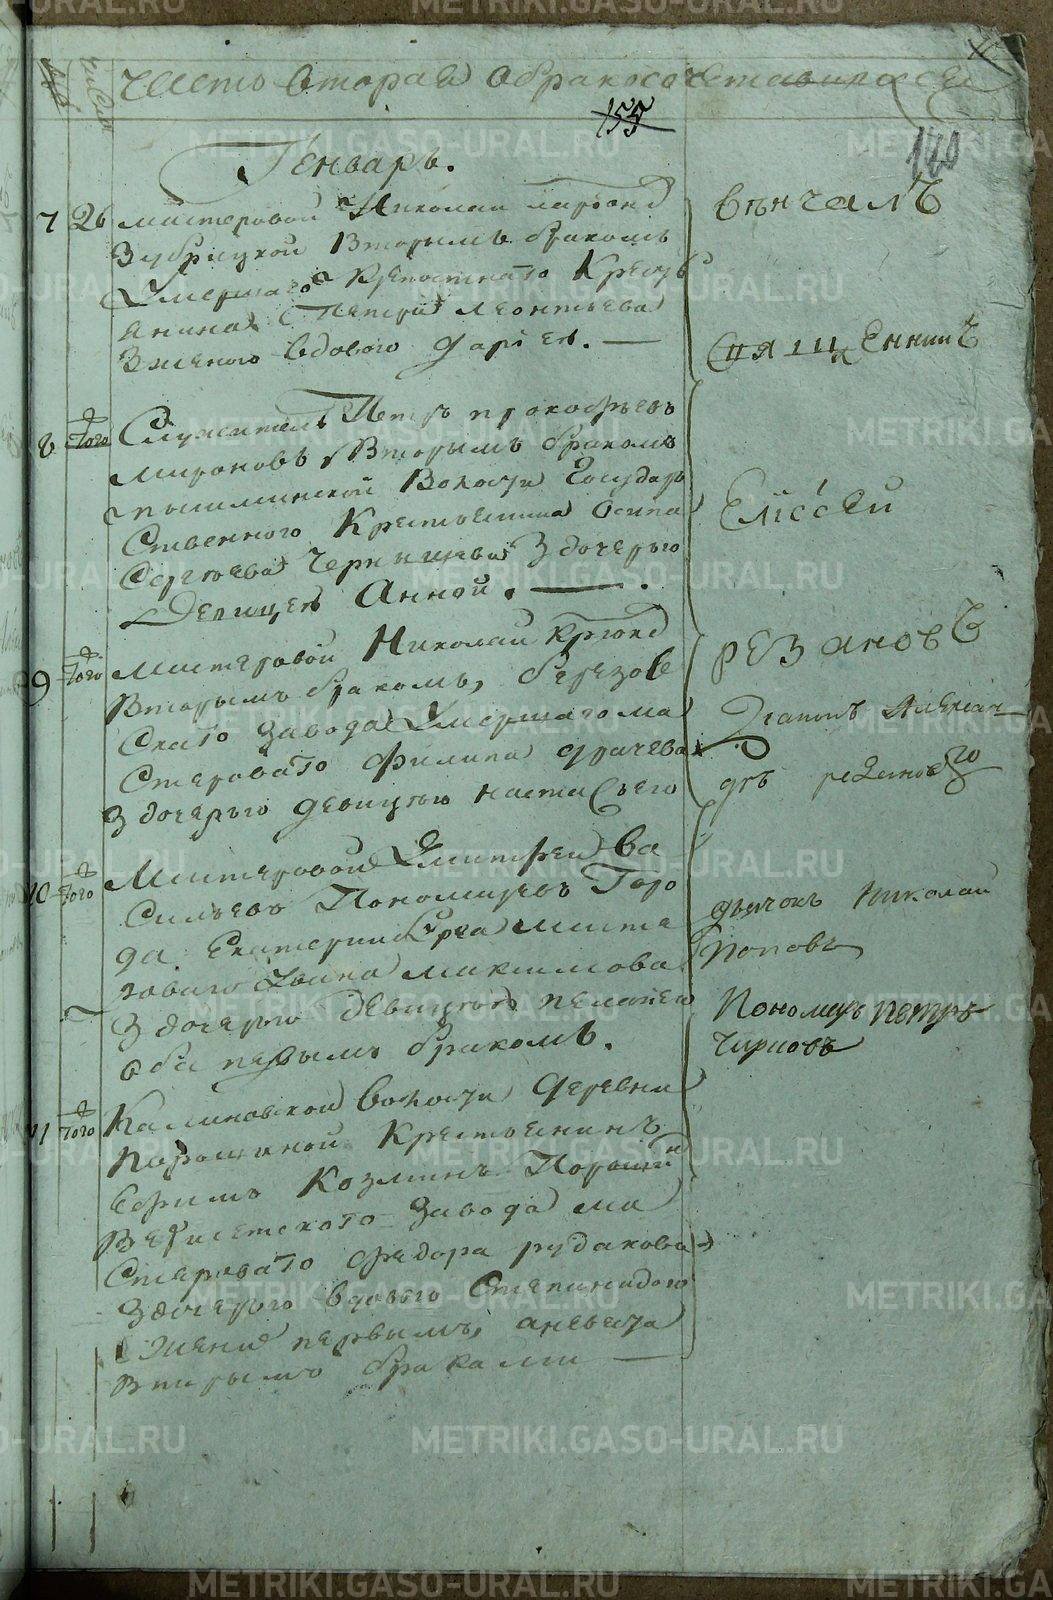 Числа
Часть вторая о бракосочетавшихся
155
120
Генварь.
7 26 мастеровой Николай Ларионо
Зубрицкой вторымъ бракомъ
умершаго крепостнаго кресть
янина Петра Леонтьева
З женою вдовою Дарьей.
8 Того Служитель Петръ Прокофьевъ
Мироновъ вторымъ бракомъ
Пышминской волости Государ
ственного крестьянина Осипа
Сергеева Черницына З дочерью
Девицей Анной.
9 Того Мастеровой Николай Крюко
вторымъ бракомъ, Березов
скаго завода умершаго ма
стероваго Филипа Драчева
З дочерью девицею Настасьею
10 Того Мастеровой Дмитрей Ва
сильевъ Пономаревъ Горо
да Екатеринбурга масте
роваго Ивана Максимова
З дочерью девицею Пелагею
оба первымъ бракомъ.
11 Того Калиновской волости Деревни
Парошиной крестьянинъ
Ефимъ Козминъ Порошин
Верхисетскаго завода ма
стероваго Федора Рудакова
З дочерью вдовою Степанидою
женихъ первымъ, а невеста
вторымъ браками
Вѣнчалъ
Священникъ
Елісей
Резановъ
Диаконъ Александръ Резановъ
дьячокъ Николай
Поповъ
Пономарь Петръ
Чирковъ
METRIKI.GASO-URAL.RU